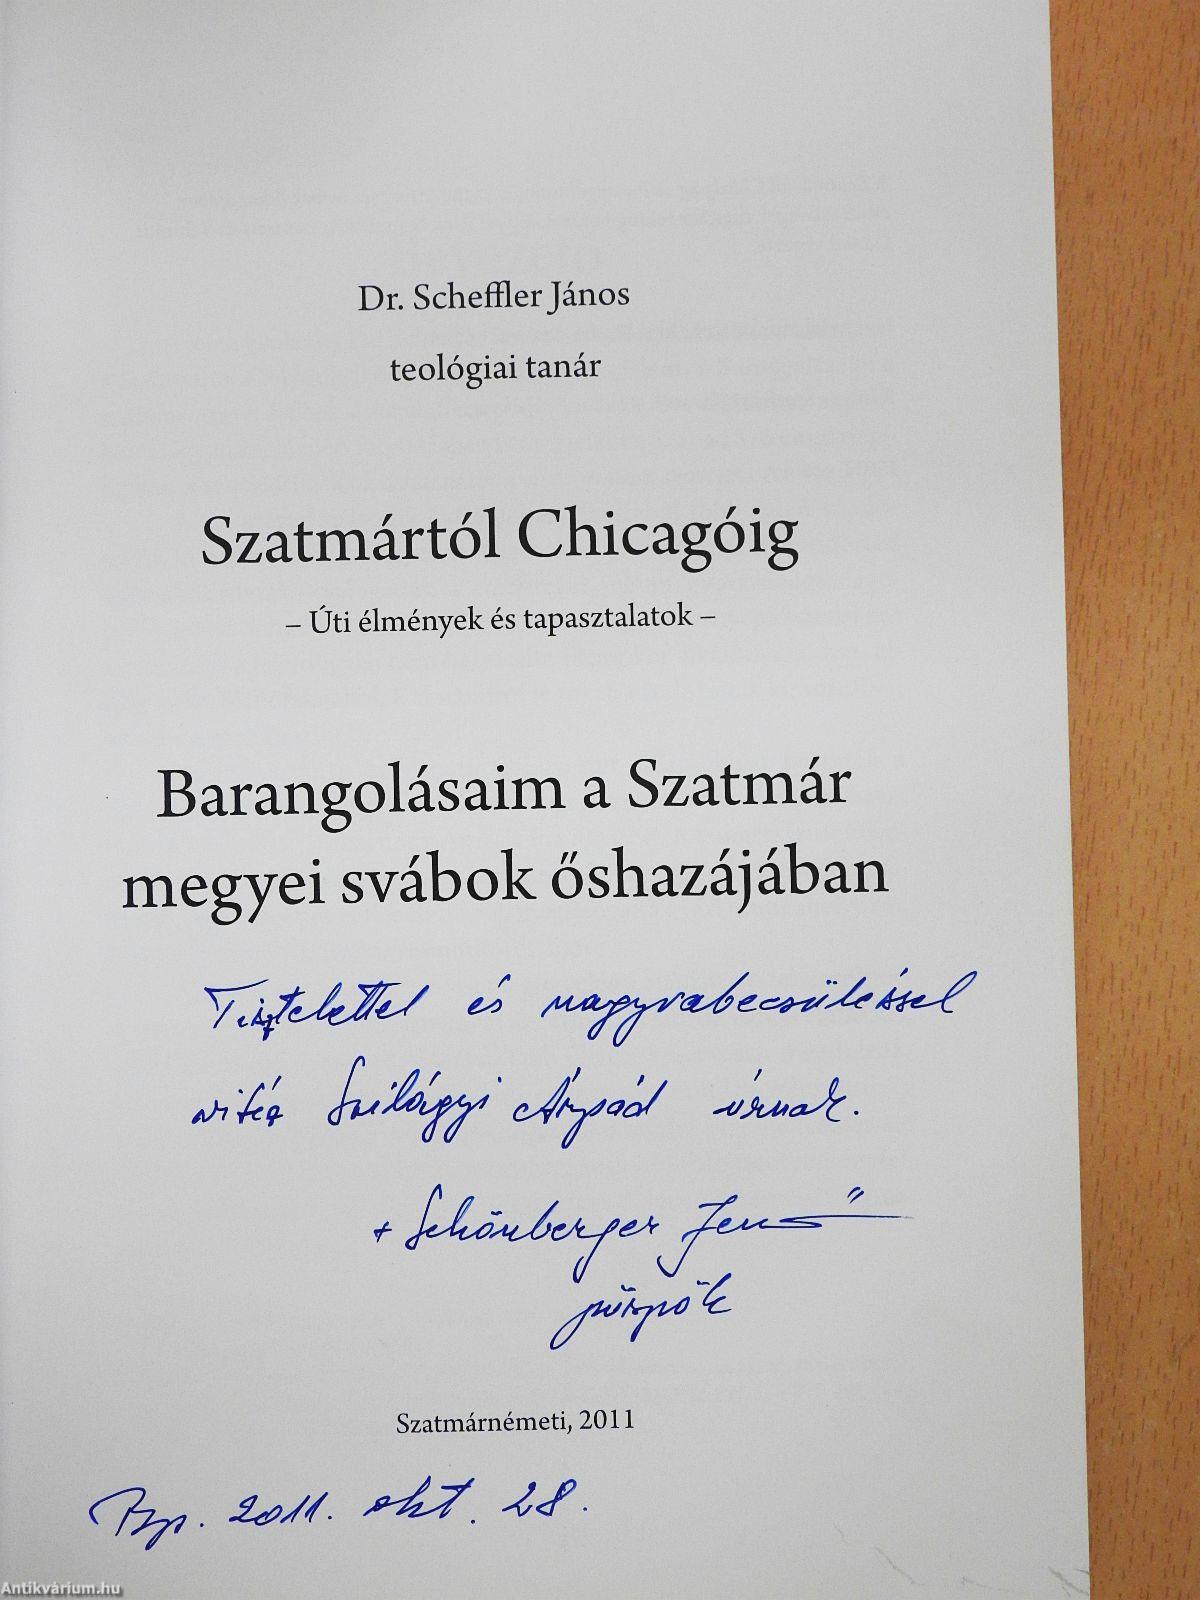 Dr. Scheffler János
teológiai tanár
Szatmártól Chicagóig
– Úti élmények és tapasztalatok –
Barangolásaim a Szatmár
megyei svábok őshazájában
Tisztelettel és nagyrabecsüléssel
vitéz Szilágyi Árpád úrnak.
+ Schönberger Jenő
püspök
Szatmárnémeti, 2011
Bp. 2011. okt. 28.
Antikvárium.hu